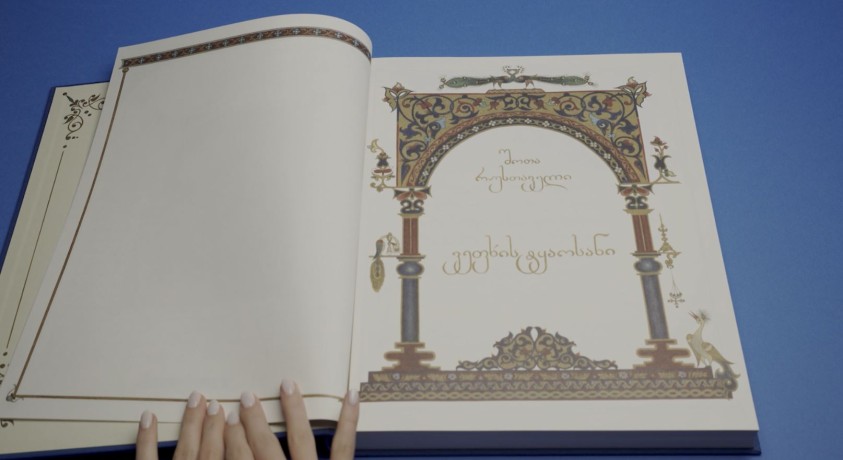 შოთა
რუსთაველი
ვეფხის ტყაოსანი